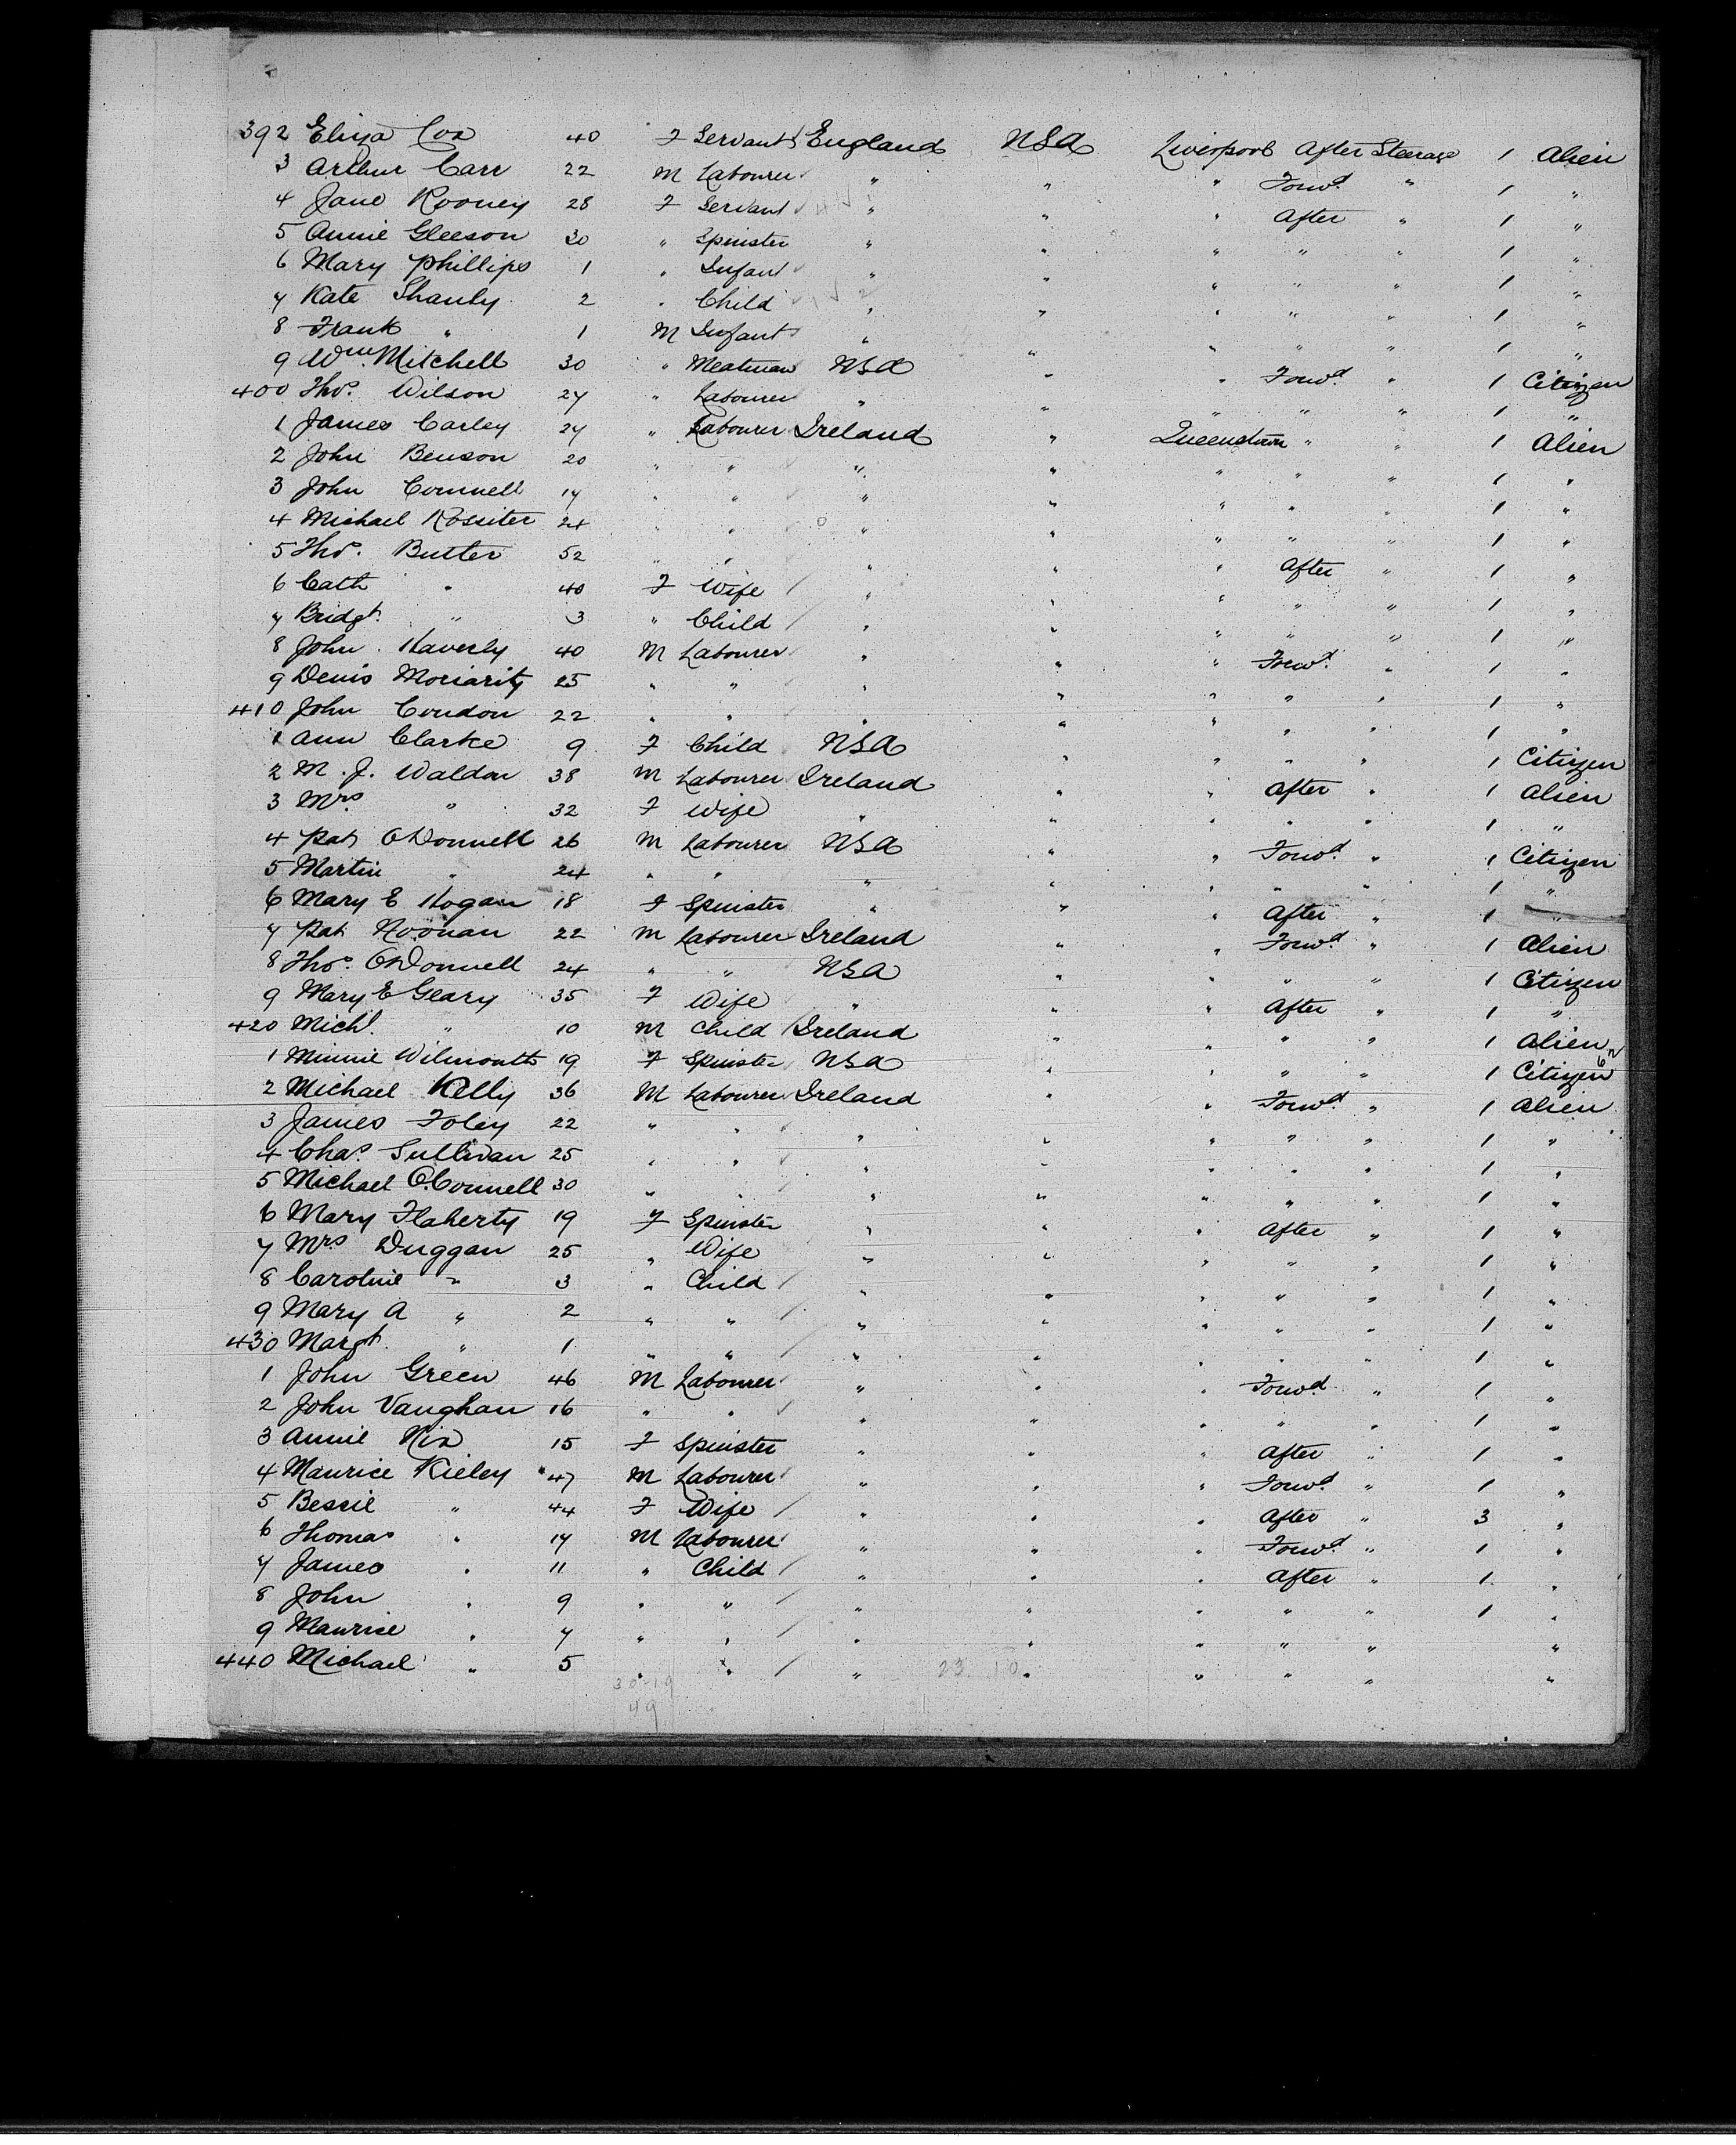 392 Eliza Cox 40 F Servant England USA Liverpool After Steerage 1 Alien
3 Arthur Carr 22 M Labourer " " " Forwd " 1 "
4 Jane Rooney 28 F Servant " " " After " 1 "
5 Annie Gleeson 30 " Spinster " " " " " 1 "
6 Mary Phillips 1 " Infant " " " " " 1 "
7 Kate Shanly 2 " Child " " " " " 1 "
8 Frank " 1 M Infant " " " " " 1 "
9 Wm Mitchell 30 " Meatman USA " " Forwd " 1 Citizen
400 Thos. Wilson 27 " Labourer " " " " " 1 "
1 James Carley 27 " Labourer Ireland " Queenstown " " 1 Alien
2 John Benson 20 " " " " " " " 1 "
3 John Connell 17 " " " " " " " 1 "
4 Michael Rossiter 24 " " " " " " " 1 "
5 Thos. Butler 52 " " " " " After " 1 "
6 Cath " 40 F Wife " " " " " 1 "
7 Bridgt. " 3 " Child " " " " " 1 "
8 John Haverly 40 M Labourer " " " Forwd " 1 "
9 Denis Moriarity 25 " " " " " " " 1 "
410 John Condon 22 " " " " " " " 1 "
1 Ann Clarke 9 F Child USA " " " " 1 Citizen
2 M. J. Waldon 38 M Labourer Ireland " " After " 1 Alien
3 Mrs " 32 F Wife " " " " " 1 "
4 Pat ODonnell 26 M Labourer USA " " Forwd " 1 Citizen
5 Martin " 24 " " " " " " " 1 "
6 Mary E Hogan 18 F Spinster " " " After " 1 "
7 Pat Noonan 22 M Labourer Ireland " " Forwd " 1 Alien
8 Thos. ODonnell 24 " " USA " " " " 1 Citizen
9 Mary E Geary 35 F Wife " " " After " 1 "
420 Michl. " 10 M Child Ireland " " " " 1 Alien
1 Minnie Wilmouth 19 F Spinster USA " " " " 1 Citizen
2 Michael Kelly 36 M Labourer Ireland " " Forwd " 1 Alien
3 James Foley 22 " " " " " " " 1 "
4 Chas. Sullivan 25 " " " " " " " 1 "
5 Michael O.Connell 30 " " " " " " " 1 "
6 Mary Flaherty 19 F Spinster " " " After " 1 "
7 Mrs Duggan 25 " Wife " " " " " 1 "
8 Caroline " 3 " Child " " " " " 1 "
9 Mary A " 2 " " " " " " " 1 "
430 Margt. " 1 " " " " " " " 1 "
1 John Green 46 M Labourer " " " Forwd " 1 "
2 John Vaughan 16 " " " " " " " 1 "
3 Annie Nix 15 F Spinster " " " After " 1 "
4 Maurice Kieley 47 M Labourer " " " Forwd " 1 "
5 Bessie " 44 F Wife " " " After " 3 "
6 Thomas " 17 M Labourer " " " Forwd " 1 "
7 James " 11 " Child " " " After " 1 "
8 John " 9 " " " " " " " 1 "
9 Maurice " 7 " " " " " " " "
440 Michael " 5 " " " " " " " "
23 10
30-19
49